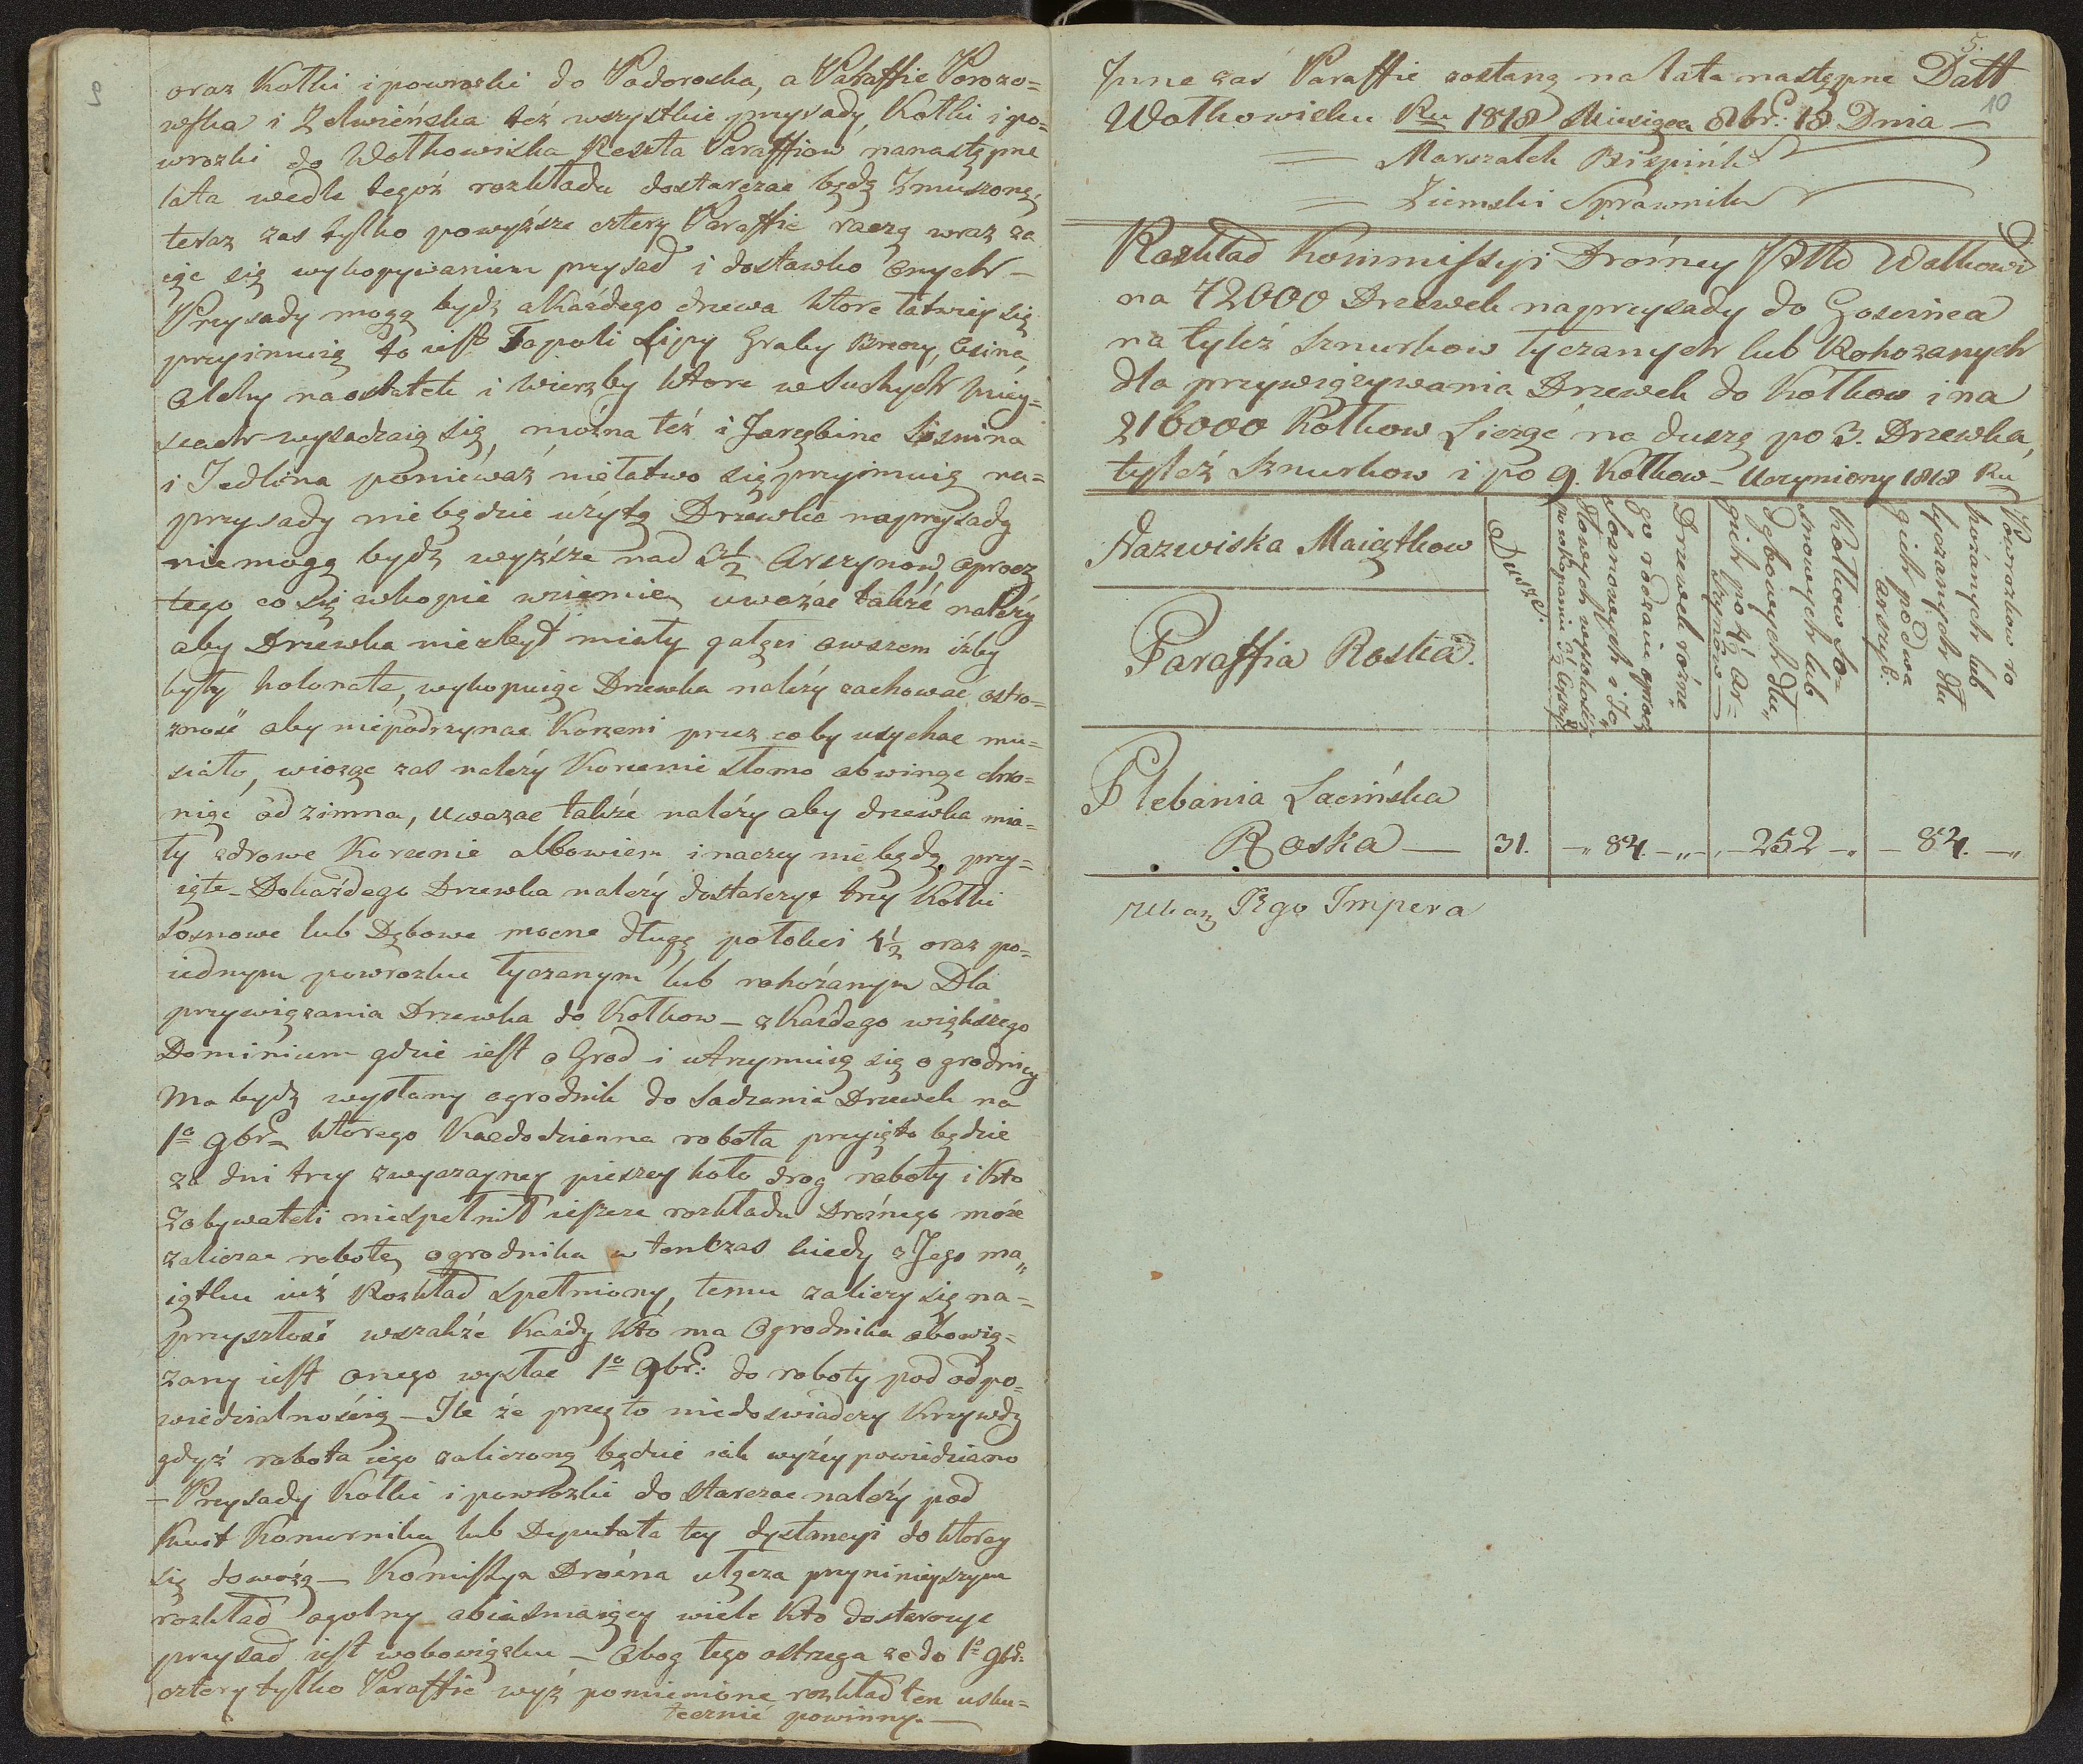 9
oraz Kołki i powrozki do Podoroska, a Paraffie Porozo=
wska i Zelwieńska też wszystkie przysady, Kołki i po=
wrozki do Wołkowiska Reszta Paraffiow nanastępne
lata wedle tegoż rozkładu dostarczac będą Zmuszone,
teraz zas tylko powyższe cztery Paraffie raczą wraz za
iąc się wykopywaniem przysad i dostawko onych —
Przysady mogą bydz z Każdego drzewa ktore łatwiey się
przyimuią to iest Topoli Lipy Graby Brzozy, Osina,
Olchy naostatek i Wierzby ktore w Suchych miey=
scach wysadzaią się, można też i Jarzębine Sosnina
i Jedlina ponieważ niełatwo się przyimuią na=
przysady niebędzie użytą Drzewka naprzysady
niemogą bydz wyższe nad 3½ Arszynow, oprocz
tego co się wkopie wziemię, uważac także należy
aby Drzewka niezbyt miały gałęzi owszem iżby
były kolonate, wykopuiąc Drzewka należy zachowac ostro=
zność aby niepodrzynac Korzeni przez coby usychac mu=
siało, wioząc zas należy Korzenie słomo obwinąc chro=
niąc od zimna, uwazac także należy aby drzewka mia=
ły zdrowe Korzenie albowiem inaczey niebędą przy=
ięte — Dokażdego Drzewka należy dostarczyc trzy Kołki
Sosnowe lub Dębowe mocne długę połokci 4½ oraz po=
iednym powrozku łyczanym lub rohożanym Dla
przywiązania Drzewka do Kołkow — z Każdego większego
Dominium gdzie iest o Grod i utrzymuią się ogrodnicy
Ma bydz wysłany ogrodnik do Sadzenia Drzewek na
1º 9brª ktorego Kaedodzienna robota przyięta będzie
za dni trzy zwyczayney pieszey koło drog roboty i Kto
Zobywateli niespełnił ieszcze rozkładu Drożnego może
zaliczac robotę ogrodnika w tenczas kiedy z Jego ma„
iątku iuż Rozkład spełniony, temu zaliczy się na=
przyszłość wszakże Każdy Kto ma Ogrodnika obowią=
zany iest onego wysłac 1º 9br: do roboty pod odpo=
wiedzialnością — Ile że przez to niedoswiadczy Krzywdy
gdyż robota iego zaliczoną będzie iak wyżey powiedziano
— Przysady Kołki i powrozki do starczac należy pod
Kwit Komornika lub Deputata tey dystancyi do ktorey
się dowożą — Komissya Drożna ułącza przyninieyszym
rozkład ogolny obiasniaiący wiele Kto dostarczyc
przysad iest wobowiązku — Obog tego ostrzega że do 1º 9br:
cztery tylko Paraffie wyż pomienione rozkład ten usku=
tecznić powinny. —
5.
10
Inne zas Paraffie zostaną na lata następne Datt
Wołkowisku Ru 1818 Miesiąca 8br: 18 Dnia —
= Marszałek Bispink
= Ziemski Sprawnik
Rozkład Kommissyi Drożney Pttu Wołkowi
na 72000 Drzewek naprzysady do Goscinca
na tyleż Sznurkow łyczanych lub Rohożanych
dla przywiązywania Drzewek do Kołkow i na
216000 Kołkow Licząc na duszę po 3. Drzewka,
tyleż Sznurkow i po 9. Kołkow — Uczyniony 1818 Ru
Nazwiska Maiątkow
Dusze.
Drzewek rożne„
go rodzaiu oprocz
Sosnowych i Jo„
dłowych wysokości
po wkopaniu 3½ Arszy:
Kołkow So=
snowych lub
dębowych dłu„
gich po 4½ Ar=
szynow —
Powrozkow ro
hożanych lub
łyczanych dłu
gich po dwa
arszy:
Paraffia Roska.
Plebania Łacińska
Roska — 31. —„ 84. —„— 252 —„ — 84. —„
Ukaz Jego Impera